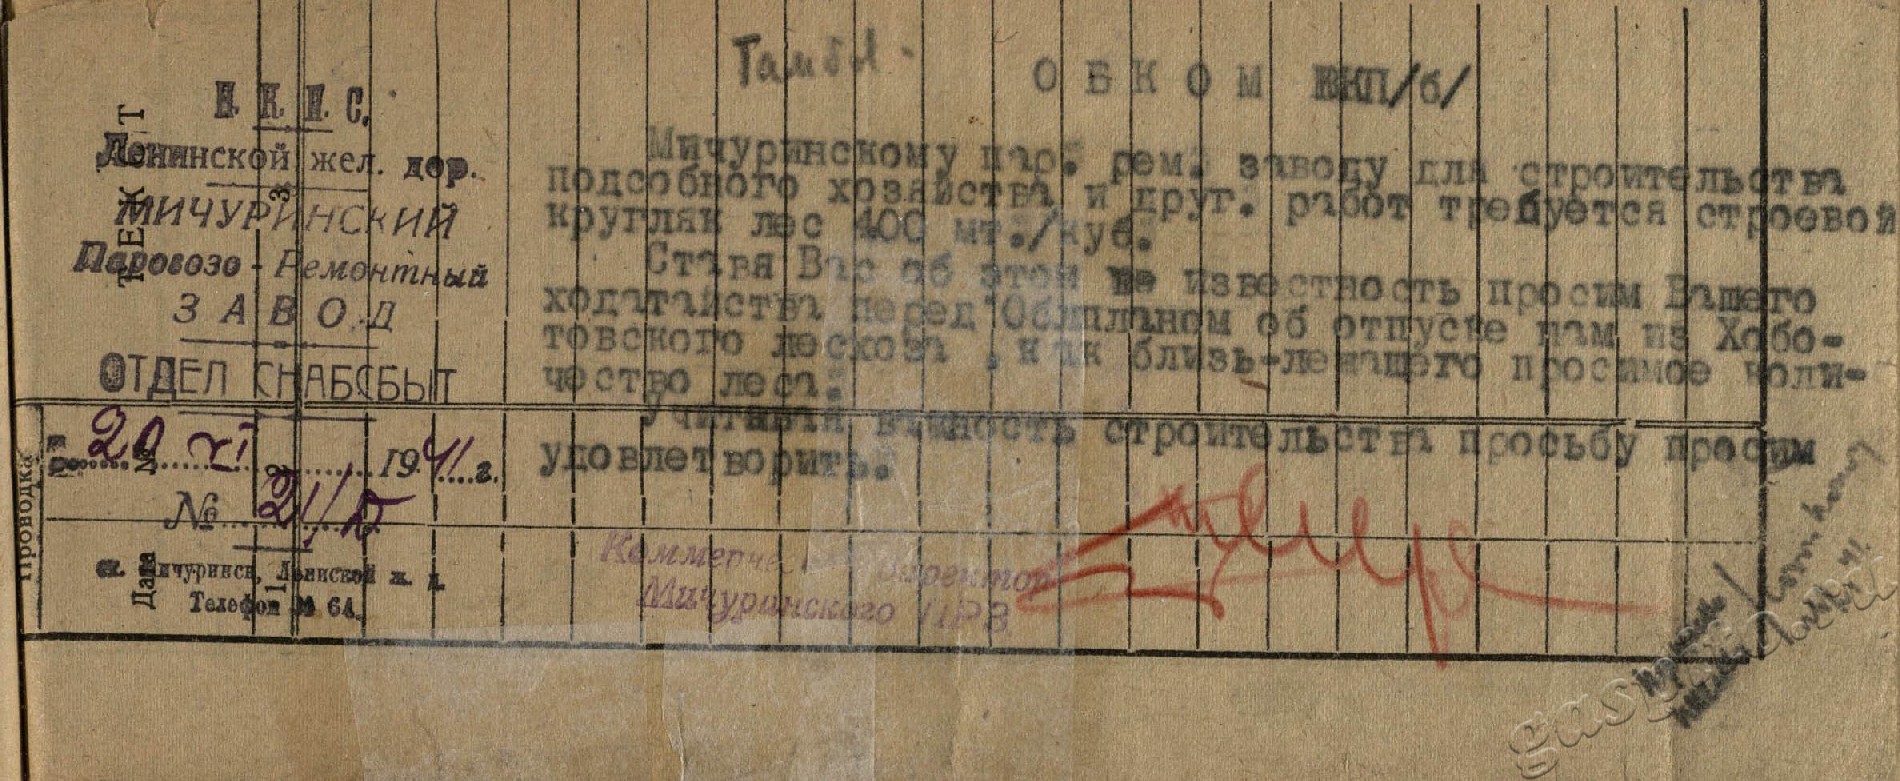 Тамбов.
ОБКОМ ВКП/б/
Н. К. П. С.
Ленинской жел. дор.
МИЧУРИНСКИЙ
Паровозо-Ремонтный
ЗАВОД
ОТДЕЛ СНАБСБЫТ
20 XI 1941 г.
№ 21/
ст. Мичуринск, Ленинской ж. д.
Телефон № 64.
Мичуринскому пар. рем. заводу для строительства
подсобного хозяйства и друг. работ требуется строевой
кругляк лес 400 мт./куб.
Ставя Вас об этом в известность просим Вашего
ходатайства перед Облпланом об отпуске нам из Хобо-
товского лесхоза , как близь-лежащего просимое коли-
чество леса.
Учитывая важность строительства просьбу просим
удовлетворить.
Коммерческий директор
Мичуринского ПРЗ
ТЕКСТ
Проводка
№
Дата
1
2
3